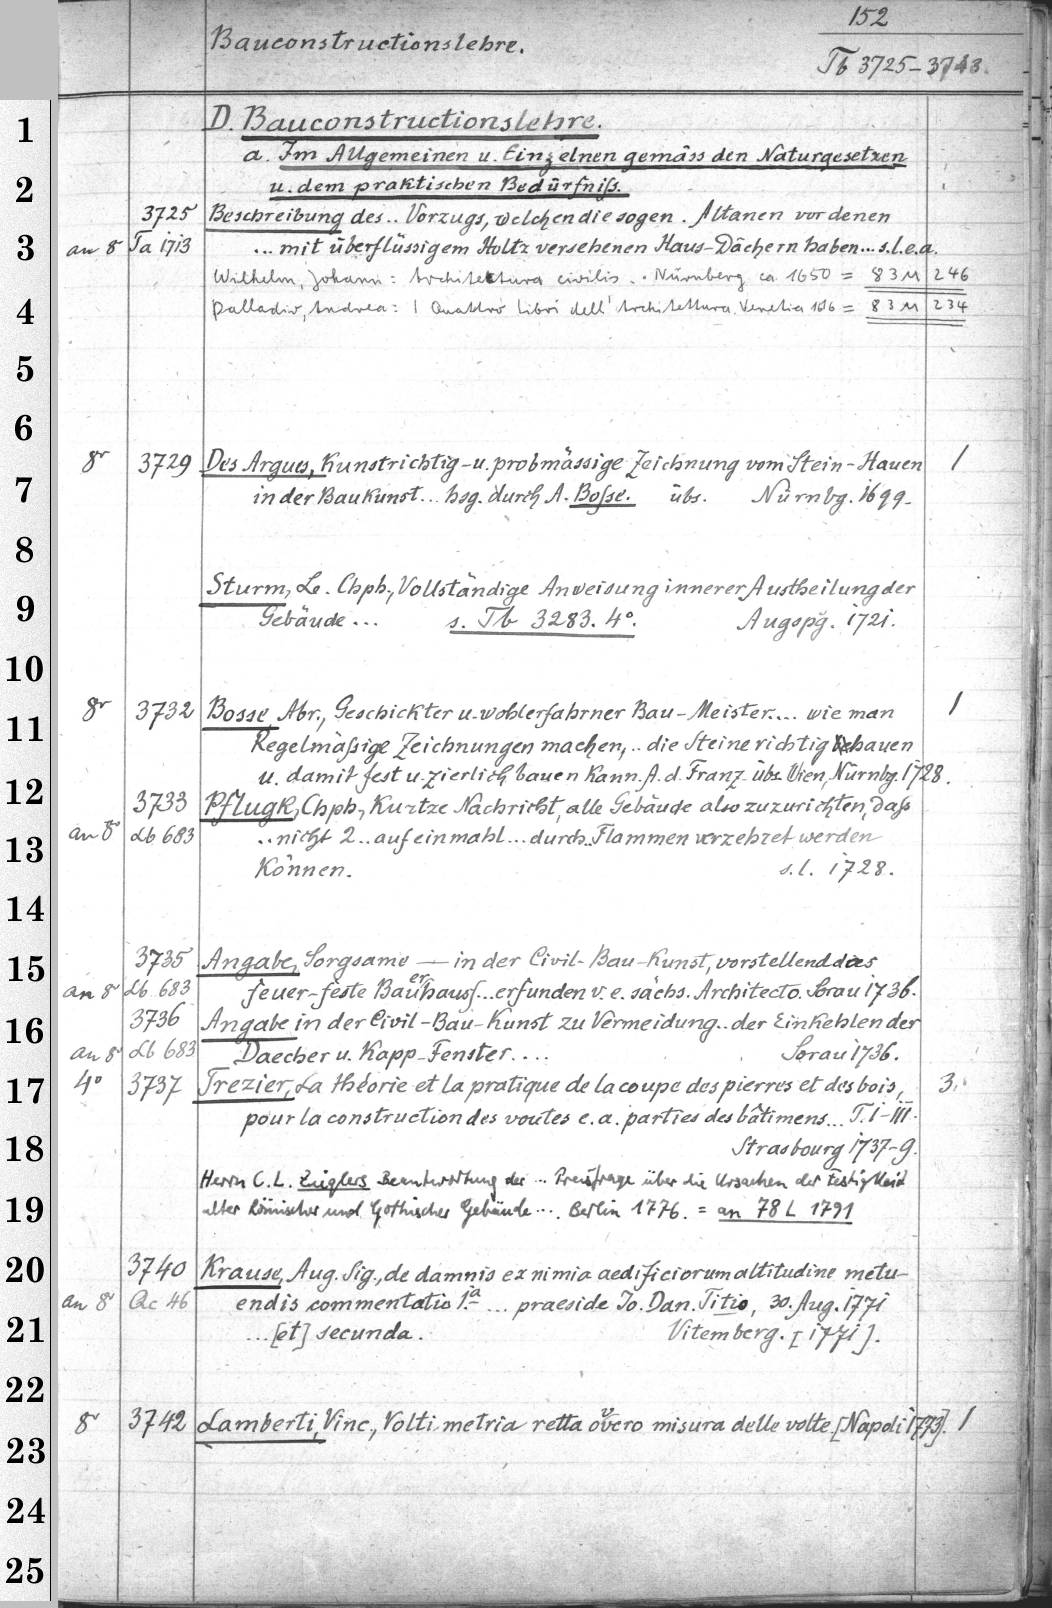 152
Bauconstructionslehre.
Tb 3725-3743.
D. Bauconstructionslehre.
a. Im Allgemeinen u. Einzelnen gemäss den Naturgesetzen
u. dem praktischen Bedürfniß.
3725 Beschreibung des.. Vorzugs, welchen die sogen. Altanen vor denen
an 8 Ta 1713 ...mit überflüssigem Holtz versehenen Haus-Dächern haben... s.l.e.a.
Wilhelm, Johann: Architectura civilis.. Nürnberg ca. 1650 = 83 M 246
Palladio, Andrea: I Quattro Libri dell'Architettura. Venetia 1616 = 83 M 234
8r 3729 Des Argues, Kunstrichtig-u. probmässige Zeichnung vom Stein-Hauen 1
in der Baukunst... hsg. durch A. Bosse. übs. Nürnbg. 1699.
Sturm, Le. Chph., Vollständige Anweisung innerer Austheilung der
Gebäude... s. Tb 3283. 4°. Augspg. 1721.
8r 3732 Bosse, Abr., Geschickter u. wohlerfahrner Bau-Meister.... wie man 1
Regelmäßige Zeichnungen machen,.. die Steine richtig behauen
u. damit fest u. zierlich bauen kann. A. d. Franz. übs. Wien, Nürnbg. 1728.
3733 Pflugk, Chph., Kurtze Nachricht, alle Gebäude also zuzurichten, daß
an 8 Lb 683 ..nicht 2.. auf einmahl... durch.. Flammen verzehret werden
Können. s.l. 1728.
3735 Angabe, Sorgsame — in der Civil-Bau-Kunst, vorstellend das
an 8 Lb. 683 feuer-feste Bauerhaus... erfunden v. e. sächs. Architecto. Sorau 1736.
3736 Angabe in der Civil-Bau-Kunst zu Vermeidung.. der Einkehlen der
an 8 Lb 683 Daecher u. Kapp-Fenster.... Sorau 1736.
4° 3737 Frezier, La théorie et la pratique de la coupe des pierres et des bois, 3.
pour la construction des voutes e. a. parties des bâtimens... T. I-III.
Strasbourg 1737-9.
Herrn C. L. Zieglers Beantwortung der ... Preisfrage über die Ursachen der Festigkeit
alter Römischer und Gothischer Gebäude .... Berlin 1776. = an 78 L 1791
3740 Krause, Aug. Sig., de damnis ex nimia aedificiorum altitudine metu-
an 8 Qc 46 endis commentatio 1.a ... praeside Jo. Dan. Titio, 30. Aug. 1771
...[et] secunda. Vitemberg. [1771].
8r 3742 Lamberti, Vinc., Volti metria retta overo misura delle volte. [Napoli 1773]. 1
1
2
3
4
5
6
7
8
9
10
11
12
13
14
15
16
17
18
19
20
21
22
23
24
25